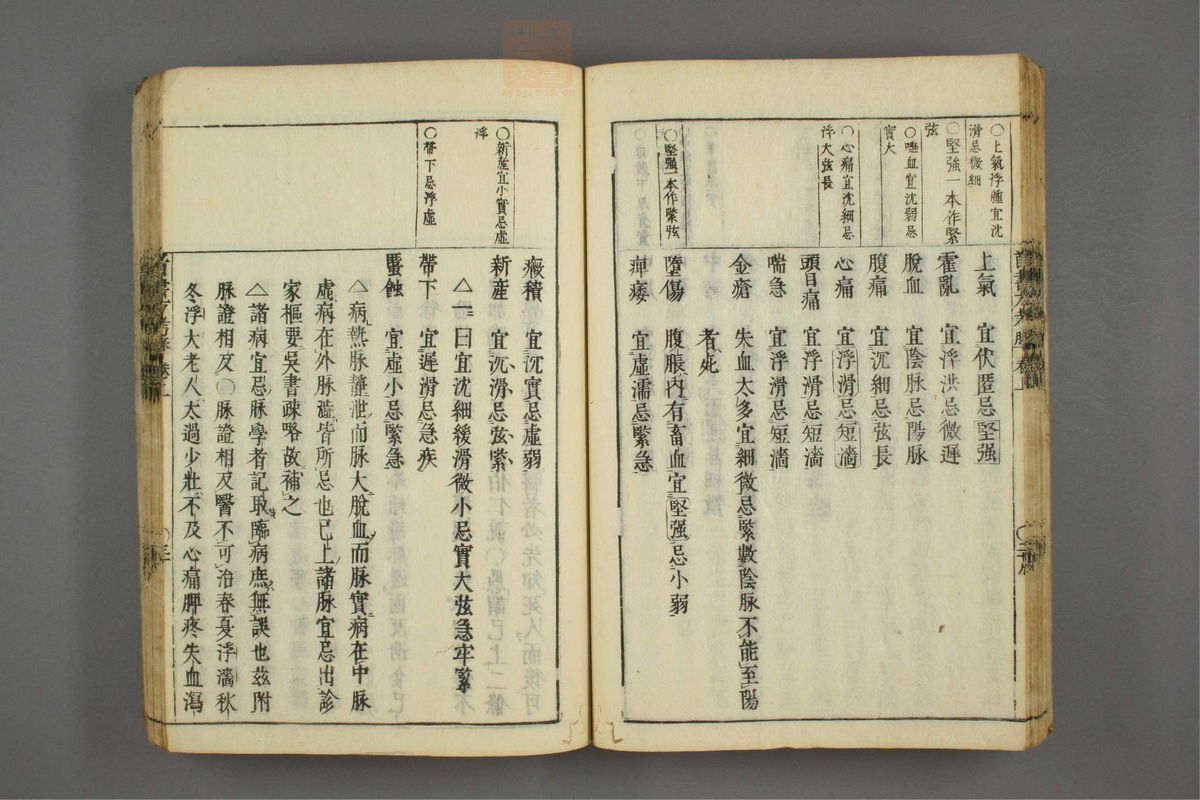 ○上氣浮腫宜沈
滑忌微細
○堅強一本作緊
弦
○嘔血宜沈弱忌
實大
○心痛宜沈細忌
浮大弦長
○堅強一本作緊弦
上氣 宜伏匿忌堅强
霍亂 宜浮洪忌微遲
脫血 宜陰脉忌陽脉
腹痛 宜沉細忌弦長
心痛 宜浮滑忌短濇
頭目痛 宜浮滑忌短濇
喘急 宜浮滑忌短濇
金瘡 失血太多宜細微忌緊數陰脉不能至陽
者死
墮傷 腹脹内有畜血宜堅强忌小弱
痺痿 宜虛濡忌緊急
○新產宜小實忌虛
浮
○帶下忌浮虛
癥積 宜沉實忌虛弱
新産 宜沉滑忌弦緊
△一曰宜沈細緩滑微小忌實大弦急牢緊
帶下 宜遲滑忌急疾
䘌蝕 宜虛小忌緊急
△病熱脉靜泄而脉大脫血而脉實病在中脉
虛病在外脉濇皆所忌也已上諸脉宜忌出診
家樞要吳書疎略故補之
△諸病宜忌脉學者記取臨病庶無誤也茲附
脉證相反○脉證相反醫不可治春夏浮濇秋
冬浮大老人太過少壯不及心痛脾疼失血瀉